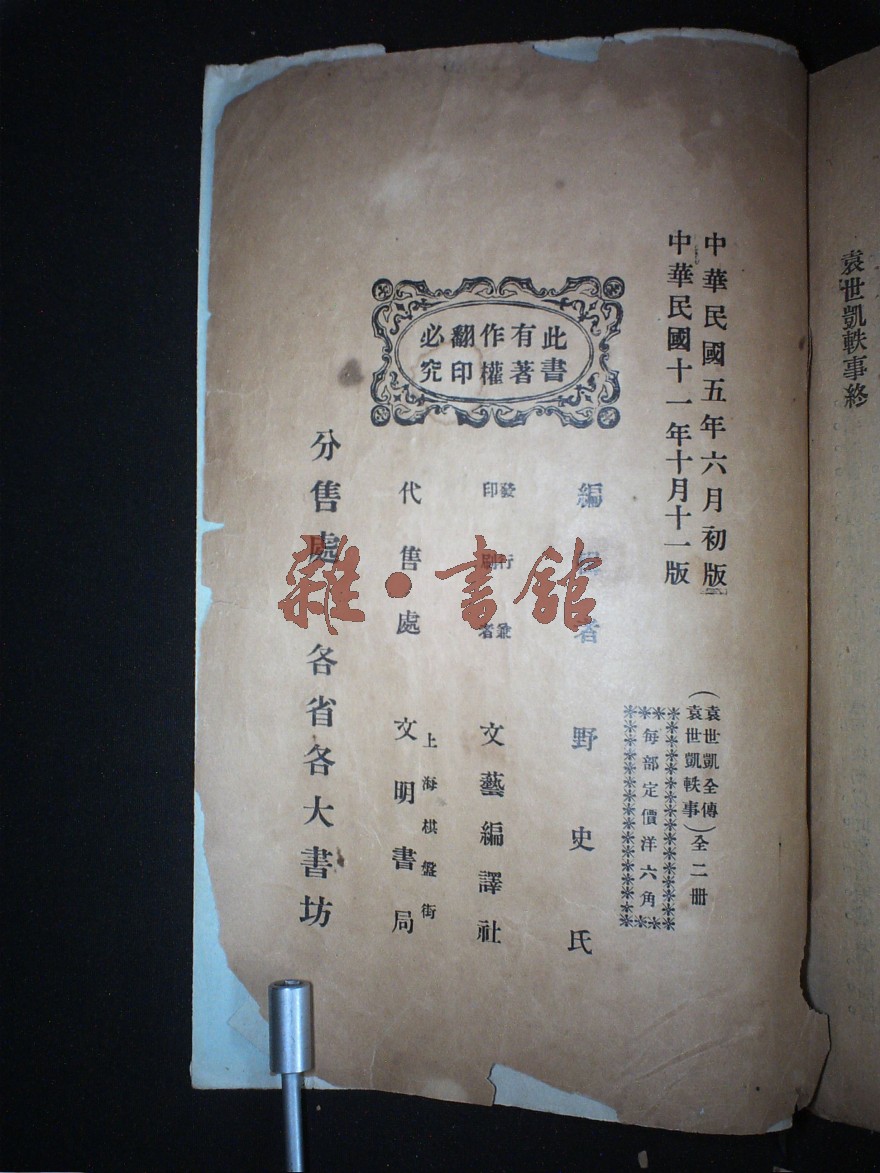 袁世凱軼事終
中華民國五年六月初版
中華民國十一年十月十一版
（袁世凱全傳
袁世凱軼事）全二冊
每部定價洋六角
此書
有著
作權
翻印
必究
編輯者 野史氏
發行兼
印刷者 文藝編譯社
上海棋盤街
代售處 文明書局
分售處 各省各大書坊
雜·書館